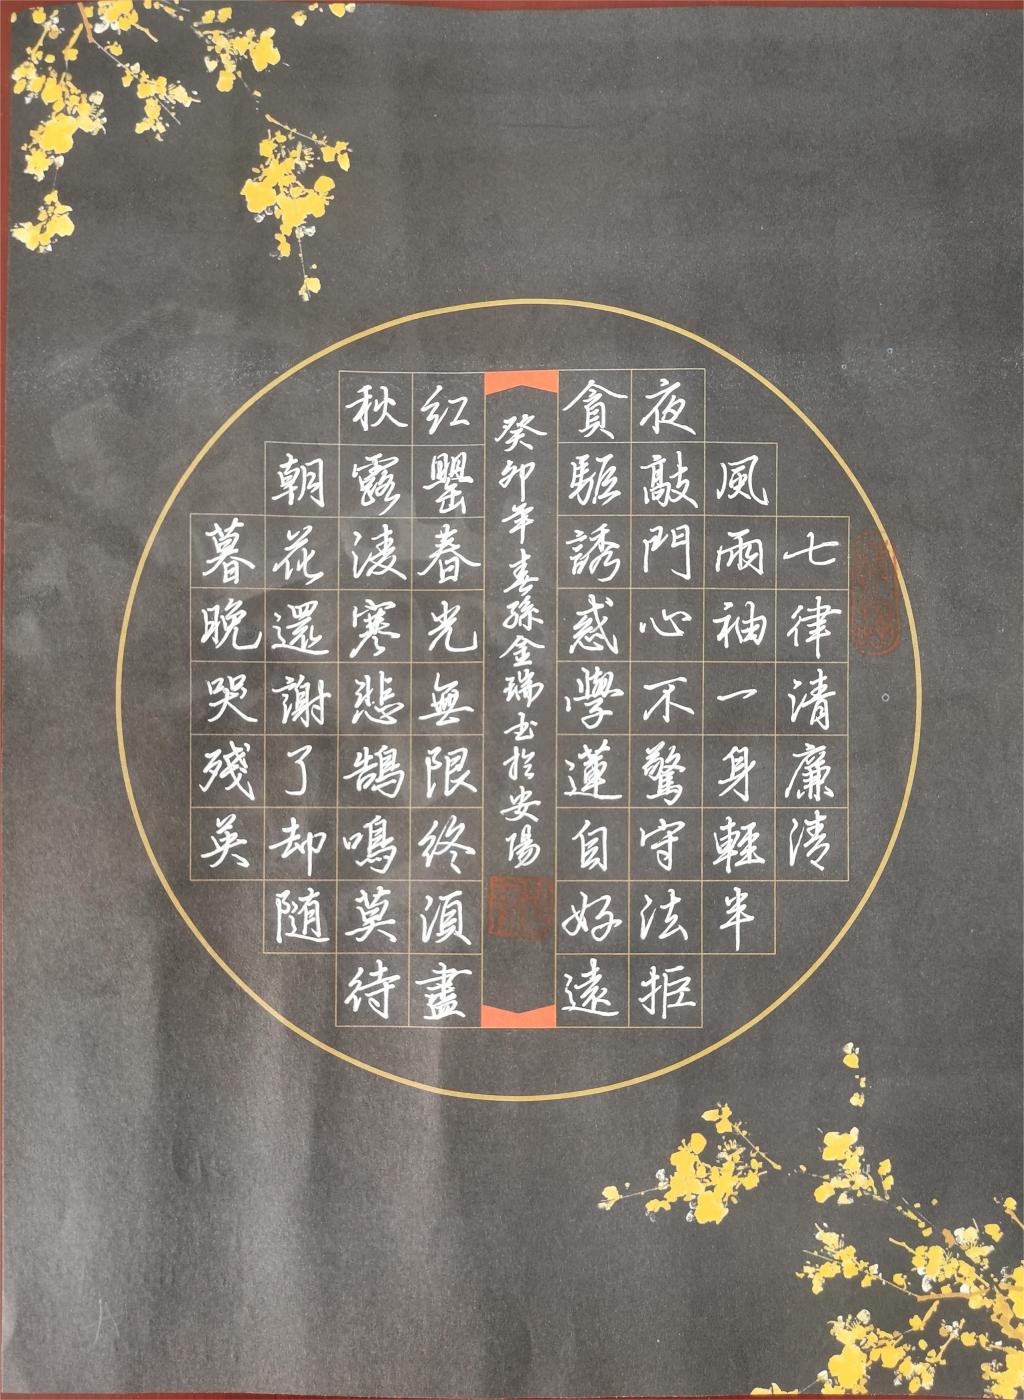 七律清廉清
風雨袖一身輕半
夜敲門心不驚守法拒
貪駈誘惑學蓮自好遠
癸卯年春孫金瑞书於安陽
红罌春光無限终須盡
秋露凌寒悲鵠鳴莫待
朝花還謝了却随
暮晚哭殘英